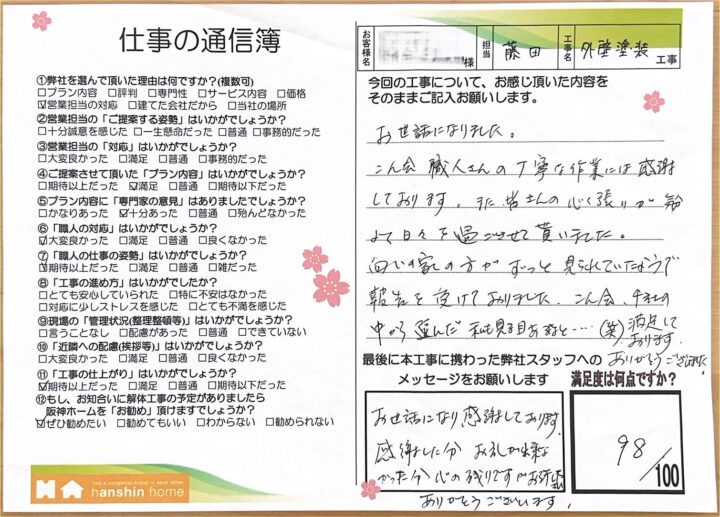 仕事の通信簿
①弊社を選んで頂いた理由は何ですか?(複数可)
□プラン内容 □評判 □専門性 □サービス内容 □価格
☑営業担当の対応 □建てた会社だから □当社の場所
②営業担当の「ご提案する姿勢」はいかがでしょうか?
□十分誠意を感じた □一生懸命だった □普通 □事務的だった
③営業担当の「対応」はいかがでしょうか?
□大変良かった □満足 □普通 □事務的だった
④ご提案させて頂いた「プラン内容」はいかがでしょうか?
□期待以上だった ☑満足 □普通 □期待以下だった
⑤プラン内容に「専門家の意見」はありましたでしょうか?
□かなりあった ☑十分あった □普通 □殆んどなかった
⑥「職人の対応」はいかがでしょうか?
☑大変良かった □満足 □普通 □良くなかった
⑦「職人の仕事の姿勢」はいかがでしょうか?
☑期待以上だった □満足 □普通 □雑だった
⑧「工事の進め方」はいかがでしたか?
□とても安心していられた □特に不安はなかった
□対応に少しストレスを感じた □とても不満を感じた
⑨現場の「管理状況(整理整頓等)」はいかがでしょうか?
□言うことなし □配慮があった □普通 □できていない
⑩「近隣への配慮(挨拶等)」はいかがでしょうか?
□大変良かった □満足 □普通 □良くなかった
⑪「工事の仕上がり」はいかがでしょうか?
☑期待以上だった □満足 □普通 □期待以下だった
⑫もし、お知合いに解体工事の予定がありましたら
阪神ホームを「お勧め」頂けますでしょうか?
☑ぜひ勧めたい □勧めてもいい □わからない □勧められない
hanshin home
お客様名 様 担当 藤田 工事名 外壁塗装 工事
今回の工事について、お感じ頂いた内容を
そのままご記入お願いします。
お世話になりました。
こん会 職人さんの丁寧な作業には感謝
しております。また皆さんの心く張りが
日々を過ごさせて貰いました。
向いの家の方がずっと見られていたようで
報告を受けておりました。こん会、
中から選んだ私も見る目あるなと…(笑)満足して
おります。
ありがとうございました。
最後に本工事に携わった弊社スタッフへの
メッセージをお願いします
お世話になり感謝しております。
感謝した分 お礼が出来な
かった分心の残りですが
ありがとうございます。
満足度は何点ですか?
98/100